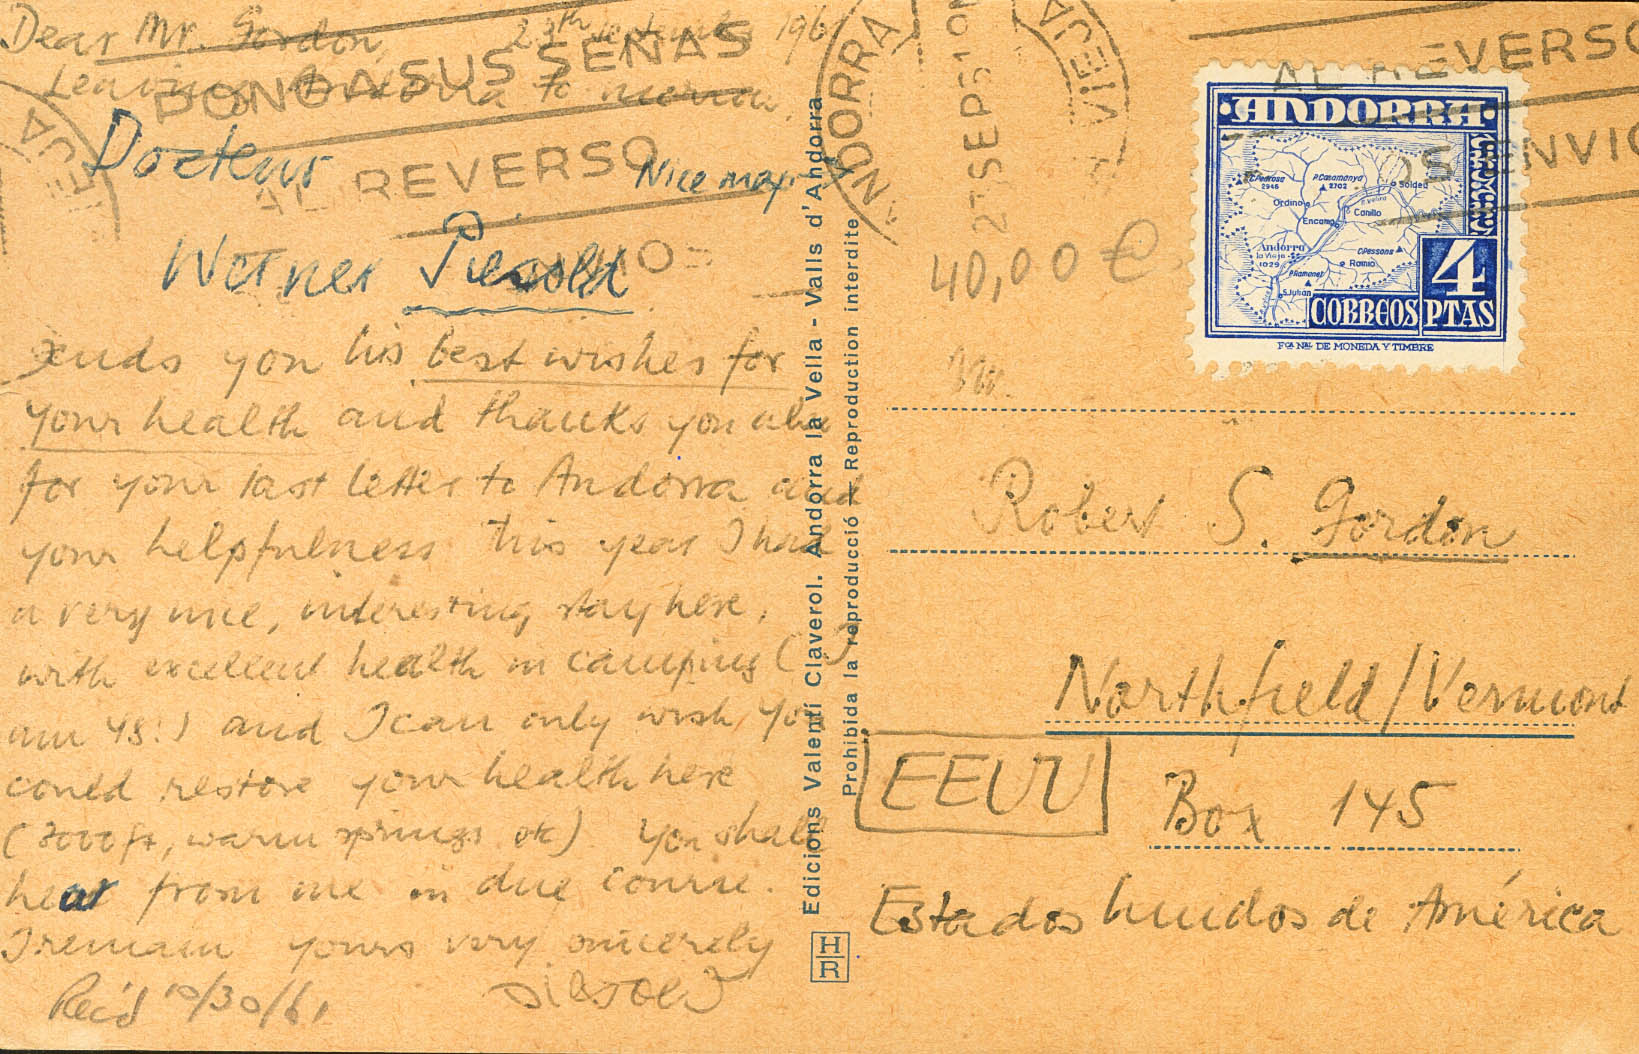 Dear Mr. Gordon, 23th September 1961
Leaving Andorra to morrow
Docteur
Nice map →
Werner
sends you his best wishes for
your health and thanks you also
for your last letter to Andorra and
your helpfulness this year I had
a very nice, interesting stay here,
with excellent health in camping (I
am 48!) and I can only wish, you
could restore your health here
(3000 ft, warm springs etc) You shall
hear from me in due course.
I remain yours very sincerely
Rec'd 10/30/61
PONGA SUS SEÑAS
AL REVERSO
Edicions Valentí Claverol. Andorra la Vella - Valls d'Andorra
Prohibida la reproducció — Reproduction interdite
H
R
ANDORRA
VIEJA
27 SEP 61
PONGA SUS SEÑAS
AL REVERSO
DE LOS ENVIOS
40,00 €
·ANDORRA·
C.Pedrosa
2945
P.Casamanya
2702
Soldeu
Ordino
R.Valira
Canillo
Encamp
Andorra
la Vieja
1029
C.Pessons
Ramio
P.Ramonet
S.Julian
4
CORREOS PTAS
Fca. Nal. DE MONEDA Y TIMBRE
Mr.
Robert S. Gordon
Northfield/Vermont
EEUU
Box 145
Estados Unidos de América